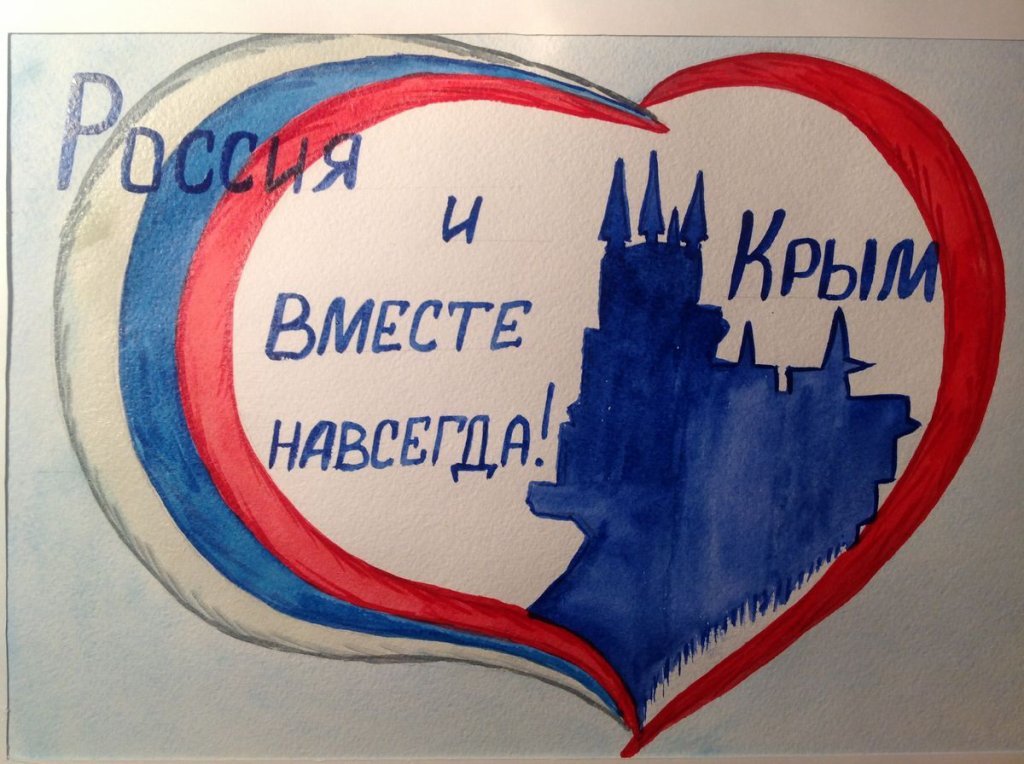 Россия
и Крым
ВМЕСТЕ
НАВСЕГДА!